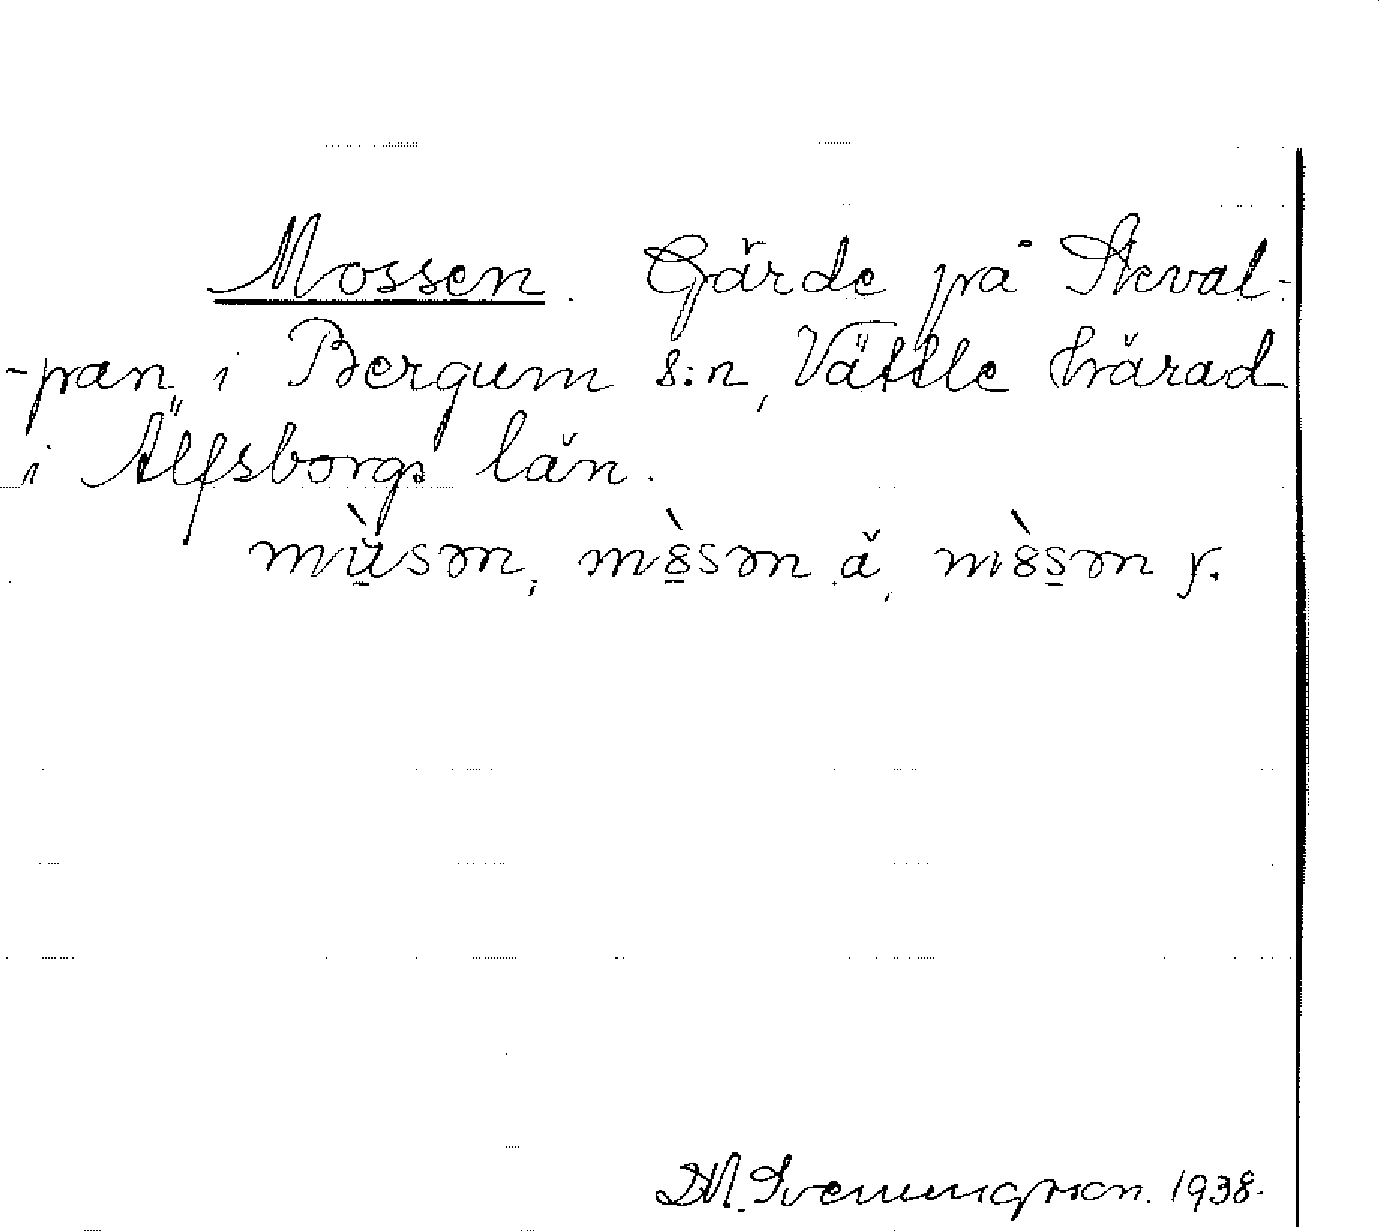 Mossen. Gärde på Steval-
-pan, i Bergum s:n, Vättle härad
i Älfsborgs län.
mùsən, m8̀sən ä, m8̀sən y.
D.M. Svenungsson. 1938.